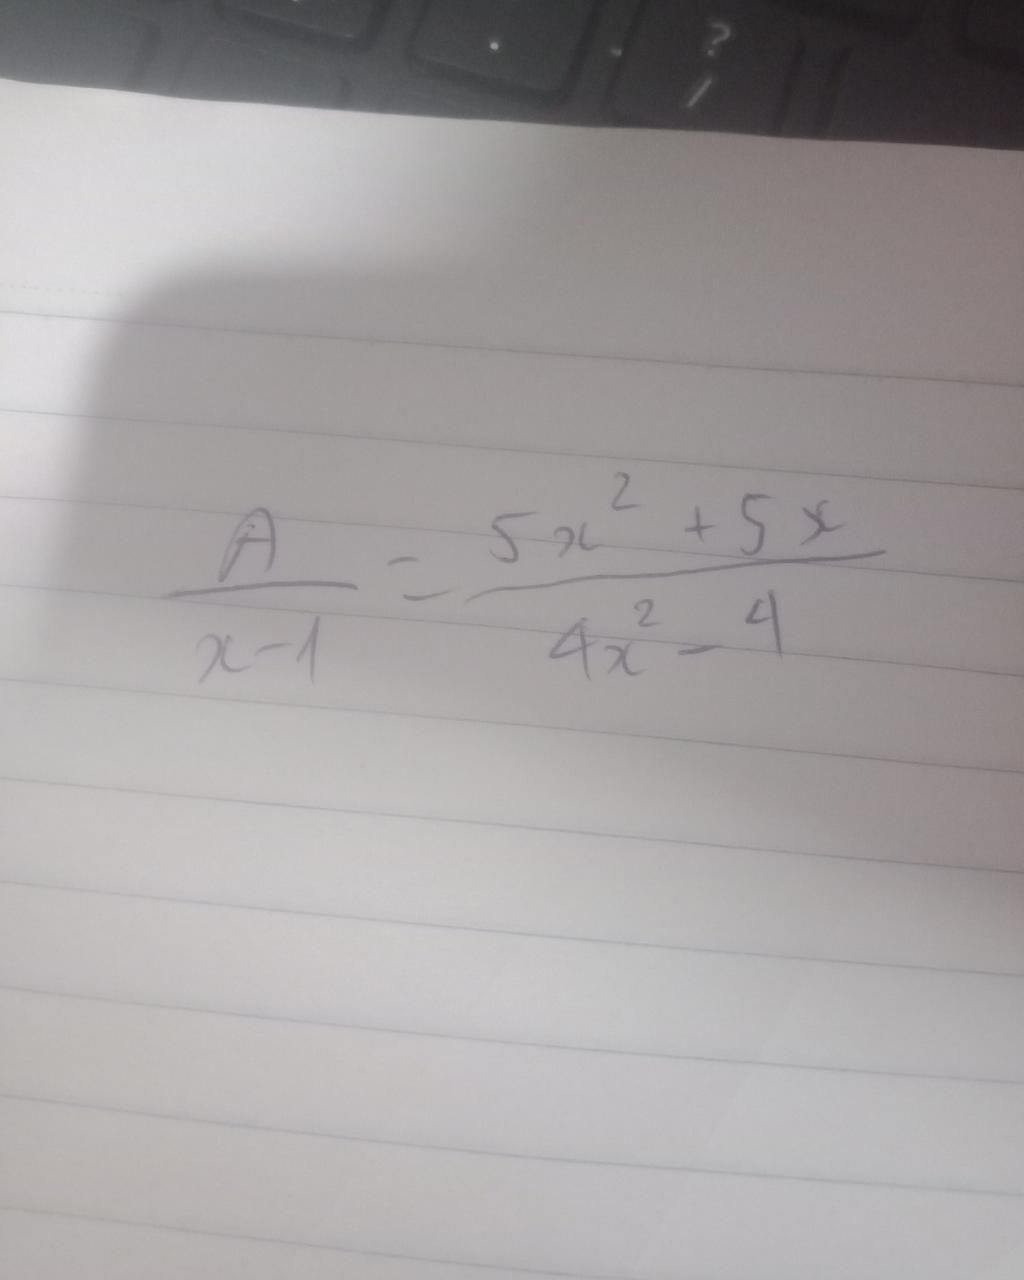 ? .
/
A/(x-1) = (5x² + 5x)/(4x² - 4)